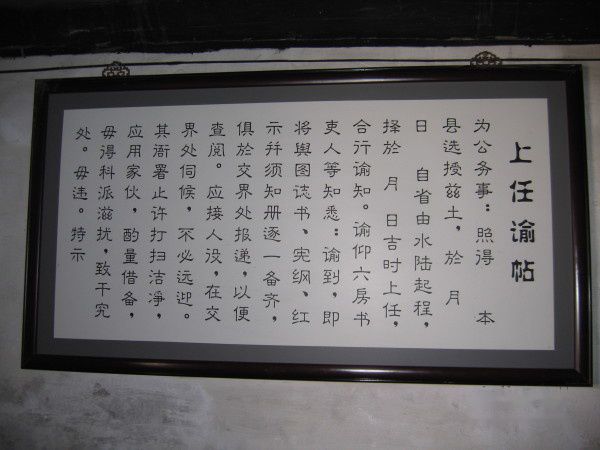 上任谕帖
为公务事：照得 本
县选授兹土，於 月
日 自省由水陆起程，
择於 月 日吉时上任，
合行谕知。谕仰六房书
吏人等知悉：谕到，即
将舆图志书、宪纲、红
示幷须知册逐一备齐，
俱於交界处报递，以便
查阅。应接人役，在交
界处伺候，不必远迎。
其衙署止许打扫洁净，
应用家伙，酌量借备，
毋得科派滋扰，致干究
处。毋违。特示